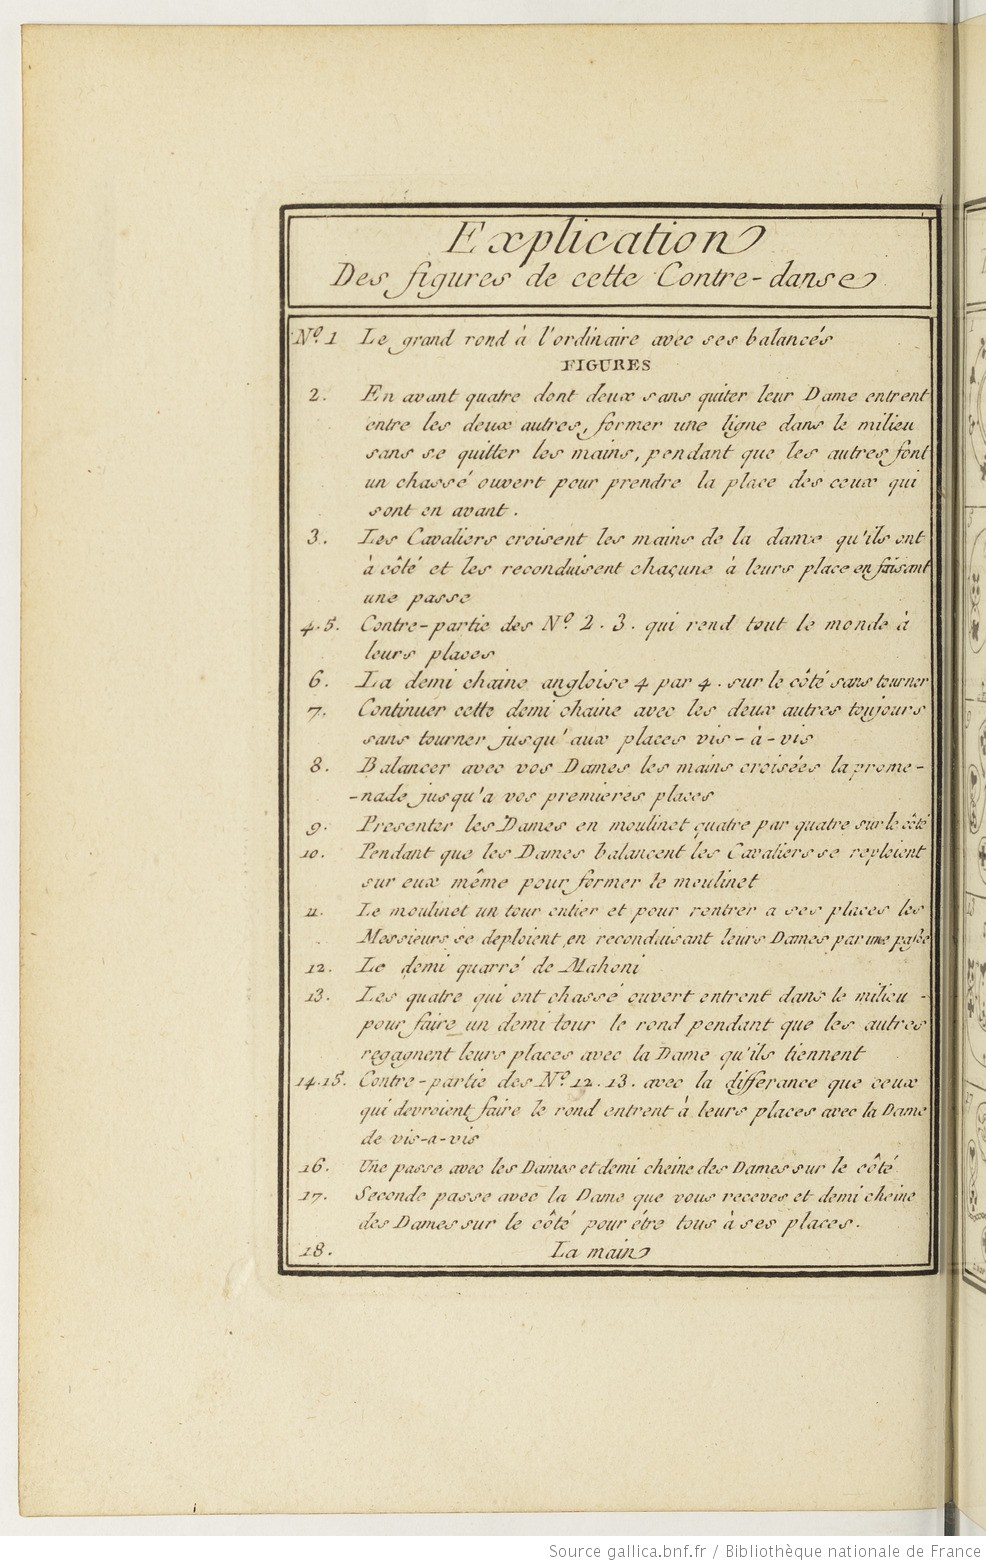 Explication
Des figures de cette Contre-danse
Nº. 1 Le grand rond à l'ordinaire avec ses balancés
FIGURES
2. En avant quatre dont deux sans quiter leur Dame entrent
entre les deux autres, former une ligne dans le milieu
sans se quitter les mains, pendant que les autres font
un chassé ouvert pour prendre la place des ceux qui
sont en avant.
3. Les Cavaliers croisent les mains de la dame qu'ils ont
à côté et les reconduisent chaçune à leurs place en faisant
une passe
4.5. Contre-partie des Nº. 2. 3. qui rend tout le monde à
leurs places
6. La demi chaine angloise 4 par 4. sur le côté sans tourner
7. Continuer cette demi chaine avec les deux autres toujours
sans tourner jusqu'aux places vis-à-vis
8. Balancer avec vos Dames les mains croisées la prome-
-nade jusqu'a vos premieres places
9. Presenter les Dames en moulinet quatre par quatre sur le côté
10. Pendant que les Dames balancent les Cavaliers se reploient
sur eux même pour former le moulinet
11. Le moulinet un tour entier et pour rentrer a ses places les
Messieurs se deploient, en reconduisant leurs Dames par une passe
12. Le demi quarré de Mahoni
13. Les quatre qui ont chassé ouvert entrent dans le milieu -
pour faire un demi tour le rond pendant que les autres
regagnent leurs places avec la Dame qu'ils tiennent
14.15. Contre-partie des Nº. 12.13. avec la differance que ceux
qui devroient faire le rond entrent à leurs places avec la Dame
de vis-a-vis
16. Une passe avec les Dames et demi cheine des Dames sur le côté
17. Seconde passe avec la Dame que vous receves et demi cheine
des Dames sur le côté pour étre tous à ses places.
18. La main
Source gallica.bnf.fr / Bibliothèque nationale de France